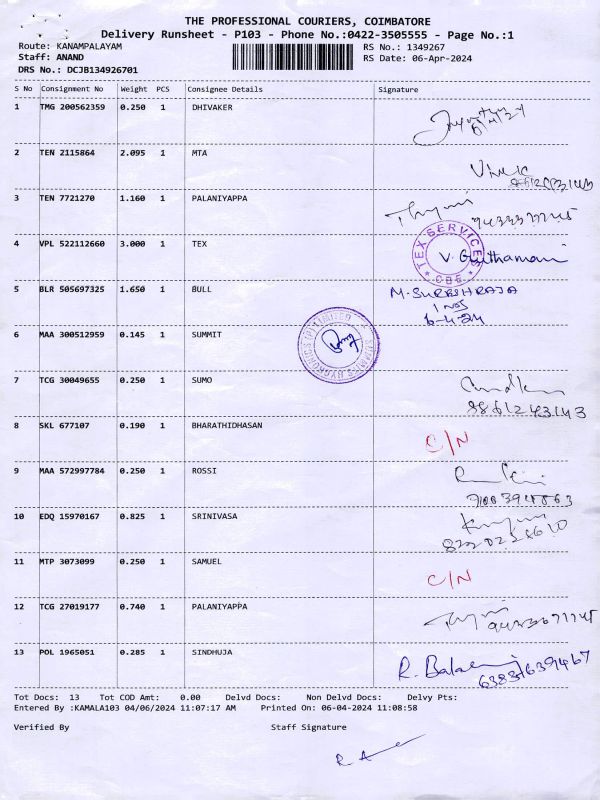 THE PROFESSIONAL COURIERS, COIMBATORE
Delivery Runsheet - P103 - Phone No.:0422-3505555 - Page No.:1
Route: KANAMPALAYAM RS No.: 1349267
Staff: ANAND RS Date: 06-Apr-2024
DRS No.: DCJB134926701
S No Consignment No Weight PCS Consignee Details Signature
1 TMG 200562359 0.250 1 DHIVAKER
2 TEN 2115864 2.095 1 MTA
3 TEN 7721270 1.160 1 PALANIYAPPA
4 VPL 522112660 3.000 1 TEX
TEX SERVICES
CBE
5 BLR 505697325 1.650 1 BULL M. SURESH RAJA
6-4-24
6 MAA 300512959 0.145 1 SUMMIT
7 TCG 30049655 0.250 1 SUMO
8 SKL 677107 0.190 1 BHARATHIDHASAN C/N
9 MAA 572997784 0.250 1 ROSSI
10 EDQ 15970167 0.825 1 SRINIVASA
11 MTP 3073099 0.250 1 SAMUEL C/N
12 TCG 27019177 0.740 1 PALANIYAPPA
13 POL 1965051 0.285 1 SINDHUJA
Tot Docs: 13 Tot COD Amt: 0.00 Delvd Docs: Non Delvd Docs: Delvy Pts:
Entered By :KAMALA103 04/06/2024 11:07:17 AM Printed On: 06-04-2024 11:08:58
Verified By Staff Signature